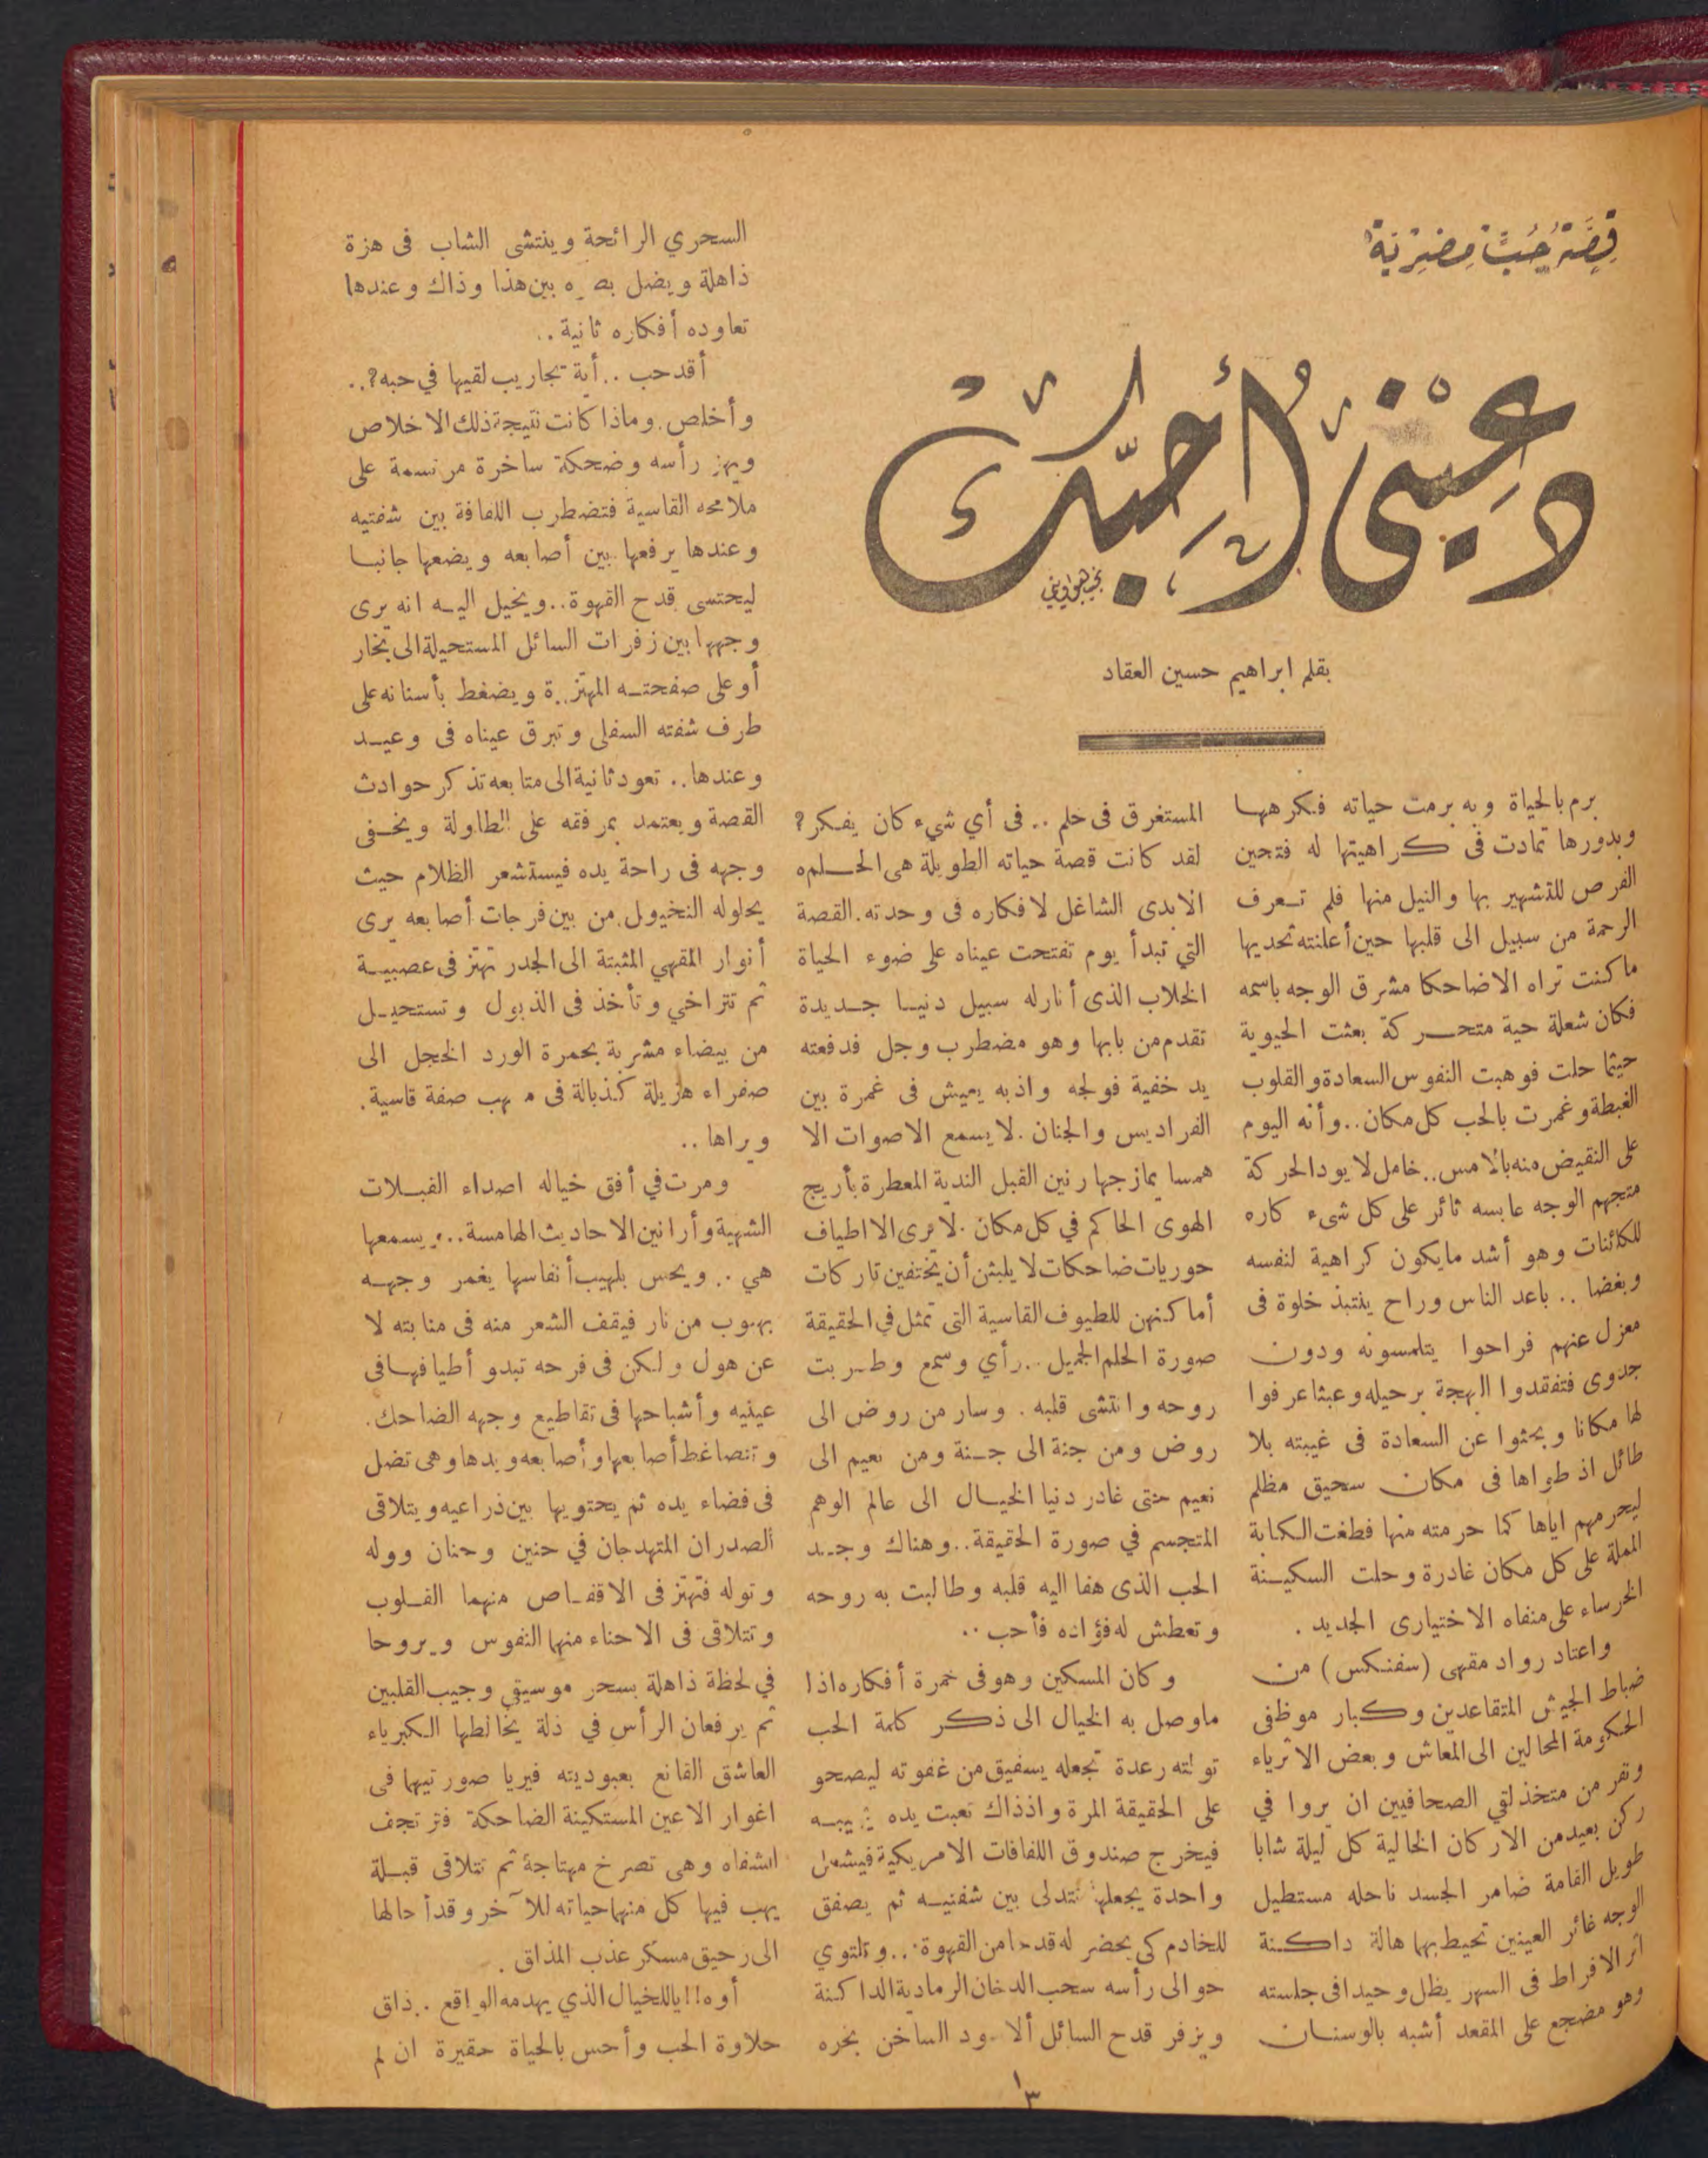 قِصَّةُ حُبٍّ مِصْرِيَّةٌ
دَعِيْنِي أُحِبُّكِ
نجيب هواويني
بقلم ابراهيم حسين العقاد
برم بالحياة وبه برمت حياته فكرهها
وبدورها تمادت فى كراهيتها له فتحين
الفرص للتشهير بها والنيل منها فلم تعرف
الرحمة من سبيل الى قلبها حين أعلنته تحديها
ما كنت تراه الا ضاحكا مشرق الوجه باسمه
فكان شعلة حية متحركة بعثت الحيوية
حيثما حلت فوهبت النفوس السعادة والقلوب
الغبطة وغمرت بالحب كل مكان .. وأنه اليوم
على النقيض منه بالامس .. خامل لا يود الحركة
متجهم الوجه عابسه ثائر على كل شىء كاره
للكائنات وهو أشد مايكون كراهية لنفسه
وبغضا .. باعد الناس وراح ينتبذ خلوة فى
معزل عنهم فراحوا يتلمسونه ودون
جدوى فتفقدوا البهجة برحيله وعبثا عرفوا
لها مكانا وبحثوا عن السعادة فى غيبته بلا
طائل اذ طواها فى مكان سحيق مظلم
ليحرمهم اياها كما حرمته منها فطغت الكابة
المملة على كل مكان غادرة وحلت السكينة
الخرساء على منفاه الاختيارى الجديد .
واعتاد رواد مقهى (سفنكس) من
ضباط الجيش المتقاعدين وكبار موظفى
الحكومة المحالين الى المعاش وبعض الاثرياء
ونفر من متخذلقي الصحافيين ان يروا في
ركن بعيد من الاركان الخالية كل ليلة شابا
طويل القامة ضامر الجسد ناحله مستطيل
الوجه غائر العينين تحيط بهما هالة داكنة
اثر الافراط فى السهر يظل وحيدا فى جلسته
وهو مضجع على المقعد أشبه بالوسنان
المستغرق فى حلم .. فى أي شيء كان يفكر ؟
لقد كانت قصة حياته الطويلة هى الحلم
الابدى الشاغل لافكاره فى وحدته . القصة
التي تبدأ يوم تفتحت عيناه على ضوء الحياة
الخلاب الذى أنارله سبيل دنيا جديدة
تقدم من بابها وهو مضطرب وجل فدفعته
يد خفية فولجه واذ به يعيش فى غمرة بين
الفراديس والجنان . لا يسمع الاصوات الا
همسا يمازجها رنين القبل الندية المعطرة بأريج
الهوى الحاكم في كل مكان . لا يرى الا اطياف
حوريات ضاحكات لا يلبثن أن يختفين تاركات
أماكنهن للطيوف القاسية التى تمثل في الحقيقة
صورة الحلم الجميل .. رأي وسمع وطربت
روحه وانتشى قلبه . وسار من روض الى
روض ومن جنة الى جنة ومن نعيم الى
نعيم حتى غادر دنيا الخيال الى عالم الوهم
المتجسم في صورة الحقيقة .. وهناك وجد
الحب الذى هفا اليه قلبه وطالبت به روحه
وتعطش له فؤاده فأحب ..
وكان المسكين وهو فى خمرة أفكاره اذا
ماوصل به الخيال الى ذكر كلمة الحب
تولته رعدة تجعله يستفيق من غفوته ليصحو
على الحقيقة المرة واذذاك تعبث يده بجيبه
فيخرج صندوق اللفافات الامريكية فيشعل
واحدة يجعلها تتدلى بين شفتيه ثم يصفق
للخادم كى يحضر له قدحا من القهوة . .. وتلتوي
حوالى رأسه سحب الدخان الرمادية الداكنة
ويزفر قدح السائل ألاسود الساخن بخره
السحري الرائحة وينتشى الشاب فى هزة
ذاهلة ويضل بصره بين هذا وذاك وعندها
تعاوده أفكاره ثانية ..
أقد حب .. أية تجاريب لقيها في حبه ؟ ..
وأخلص . وماذا كانت نتيجة ذلك الاخلاص
ويهز رأسه وضحكة ساخرة مرتسمة على
ملامحه القاسية فتضطرب اللفافة بين شفتيه
وعندها يرفعها بين أصابعه ويضعها جانبا
ليحتسى قدح القهوة .. ويخيل اليه انه يرى
وجهها بين زفرات السائل المستحيلة الى بخار
أو على صفحته المهتزة ويضغط بأسنانه على
طرف شفته السفلى وتبرق عيناه فى وعيد
وعندها .. تعود ثانية الى متابعه تذكر حوادث
القصة ويعتمد بمرفقه على الطاولة ويخفى
وجهه فى راحة يده فيستشعر الظلام حيث
يحلوله التخيول . من بين فرجات أصابعه يرى
أنوار المقهي المثبتة الى الجدر تهتز فى عصبية
ثم تتراخي وتأخذ فى الذبول وتستحيل
من بيضاء مشربة بحمرة الورد الخجل الى
صفراء هزيلة كذبالة فى مهب صفة قاسية .
ويراها ..
ومرت في أفق خياله اصداء القبلات
الشهية وأرانين الاحاديث الهامسة .. يسمعها
هي .. ويحس بلهيب أنفاسها يغمر وجهه
بهبوب من نار فيقف الشعر منه فى منابته لا
عن هول ولكن فى فرحه تبدو أطيافها فى
عينيه وأشباحها فى تقاطيع وجهه الضاحك .
وتتضاغط أصابعها وأصابعه ويدها وهى تضل
فى فضاء يده ثم يحتويها بين ذراعيه ويتلاقى
الصدران المتهدجان في حنين وحنان ووله
وتوله فتهتز فى الاقفاص منهما القلوب
وتتلاقى فى الاحناء منهما النفوس ويروحا
في لحظة ذاهلة بسحر موسيقي وجيب القلبين
ثم يرفعان الرأس في ذلة يخالطها الكبرياء
العاشق القانع بعبوديته فيريا صورتيهما فى
اغوار الاعين المستكينة الضاحكة فترتجف
الشفاه وهى تصرخ مهتاجة ثم تتلاقى قبلة
يهب فيها كل منهما حياته للآخر وقد أحالها
الى رحيق مسكر عذب المذاق .
أوه !! ياللخيال الذي يهدمه الواقع .. ذاق
حلاوة الحب وأحس بالحياة حقيرة ان لم
١٣